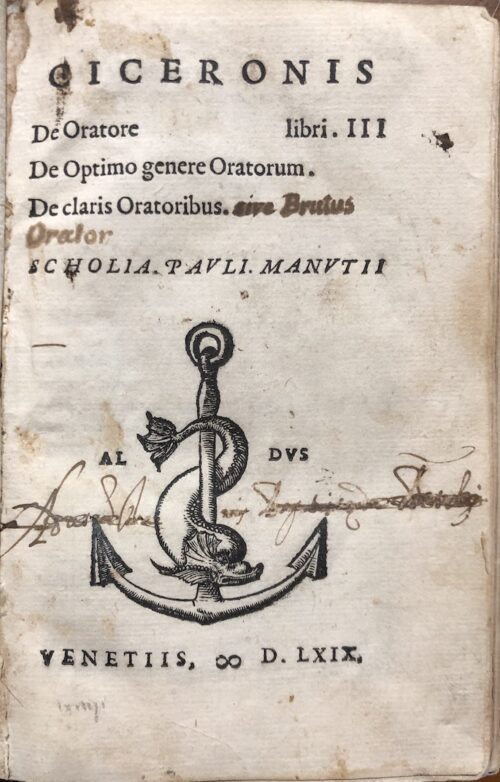 CICERONIS
De Oratore libri. III
De Optimo genere Oratorum.
De claris Oratoribus. sive Brutus
Orator
SCHOLIA. PAVLI. MANVTII
AL DVS
VENETIIS, ∞ D. LXIX.